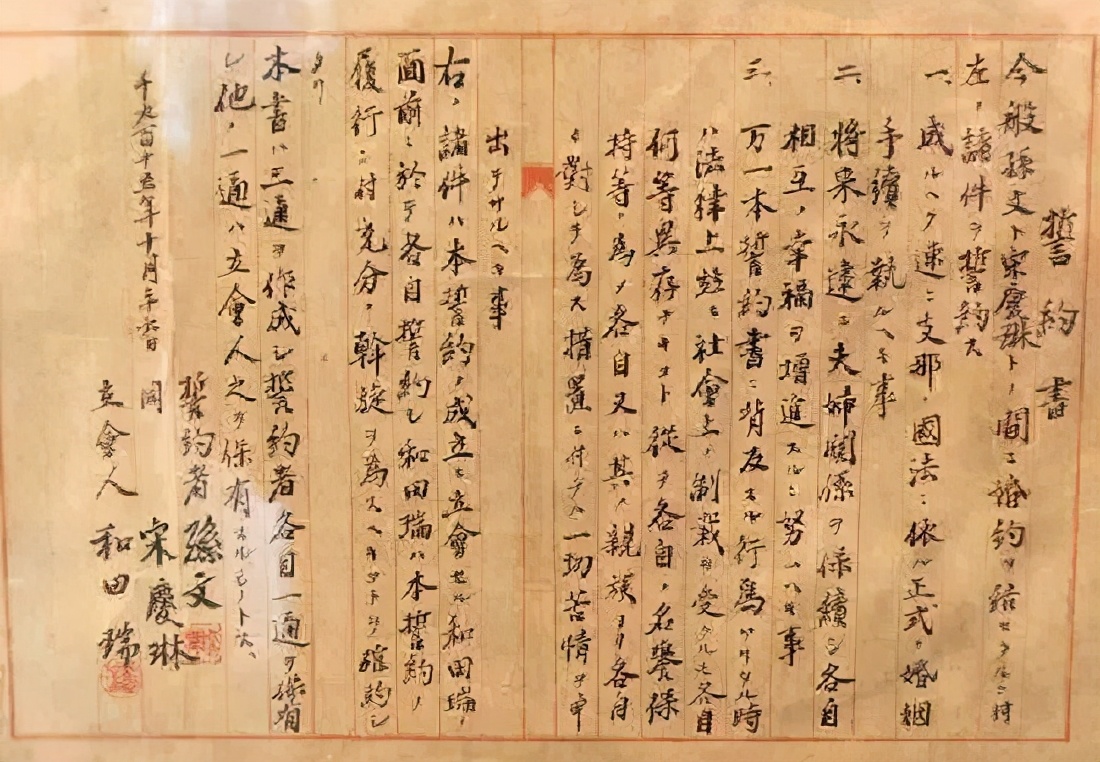 誓約書
今般孫文ト宋慶琳トノ間ニ婚約ヲ結ヒタルニ付
左ノ諸件ヲ誓約ス
一、成ルヘク速ニ支那ノ國法ニ依ル正式ノ婚姻
手續ヲ執ルヘキ事
二、將来永遠ニ夫婦關係ヲ保續シ各自
相互ノ幸福ヲ増進スルニ努ムヘキ事
三、万一本誓約書ニ背反スル行為アリタル時
ハ法律上並ニ社会上ノ制裁ヲ受クルモ各自
何等異存ナキコト從テ各自ノ名譽保
持等ノ為メ各自又ハ其ノ親族ヨリ各自
ニ對シテ為ス措置ニ付テハ一切苦情ヲ申
出テサルヘキ事
右ノ諸件ハ本誓約ノ成立セル立會セル和田瑞ノ
面前ニ於テ各自誓約シ和田瑞ハ本誓約ノ
履行ニ付充分ノ斡旋ヲ為スヘキコトヲ確約シ
タリ
本書ハ三通ヲ作成シ誓約者各自一通ヲ保有
シ他ノ一通ハ立會人之ヲ保有スルモノトス、
千九百十五年十月
誓約者 孫文
同 宋慶琳
立會人 和田瑞